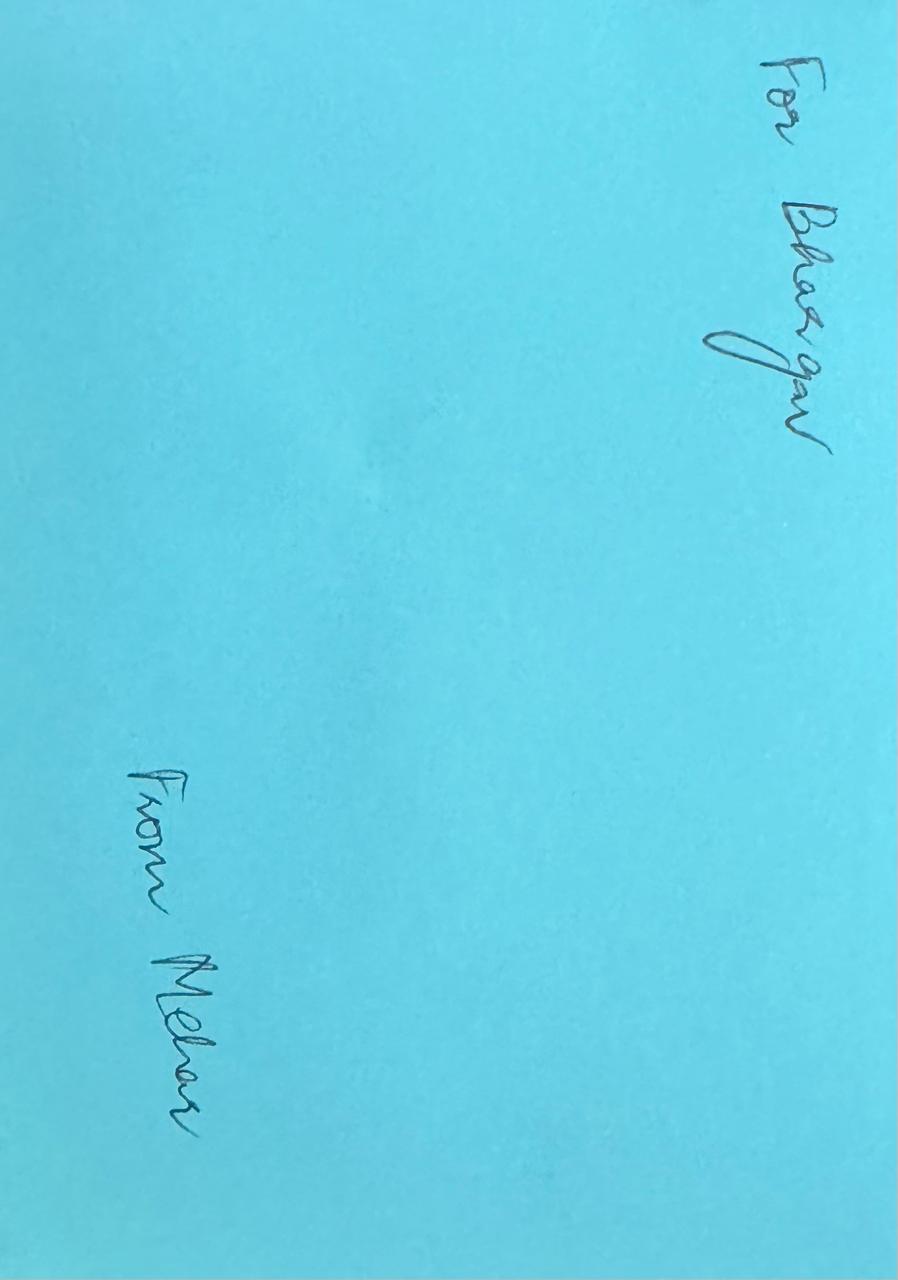 For Bhargav
From Mehar